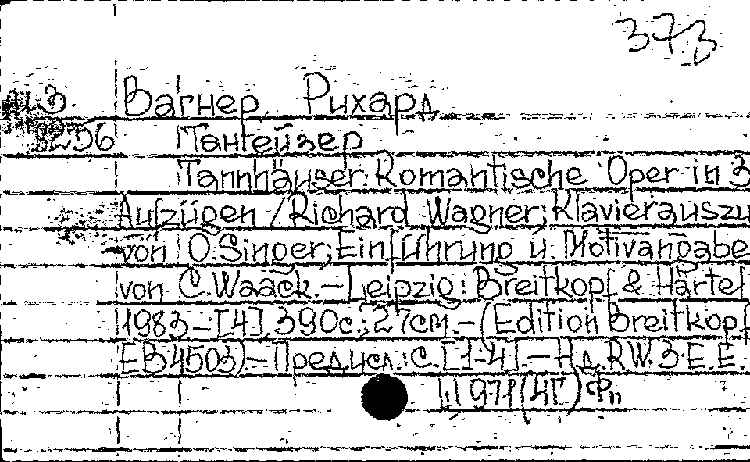 373
Вагнер Рихард
3256 Тангейзер
Tannhäuser: Romantische Oper in 3
Aufzügen / Richard Wagner; Klavierauszu
von O. Singer; Einführung u. Motivangabe
von C. Waack. – Leipzig: Breitkopf & Härtel
1983 – [4] 390 с.; 27 см. – (Edition Breitkopf
EB 4503) – Предисл.: с. [1-4] – Нд. R.W. 3. E.E.
971 (4Г)